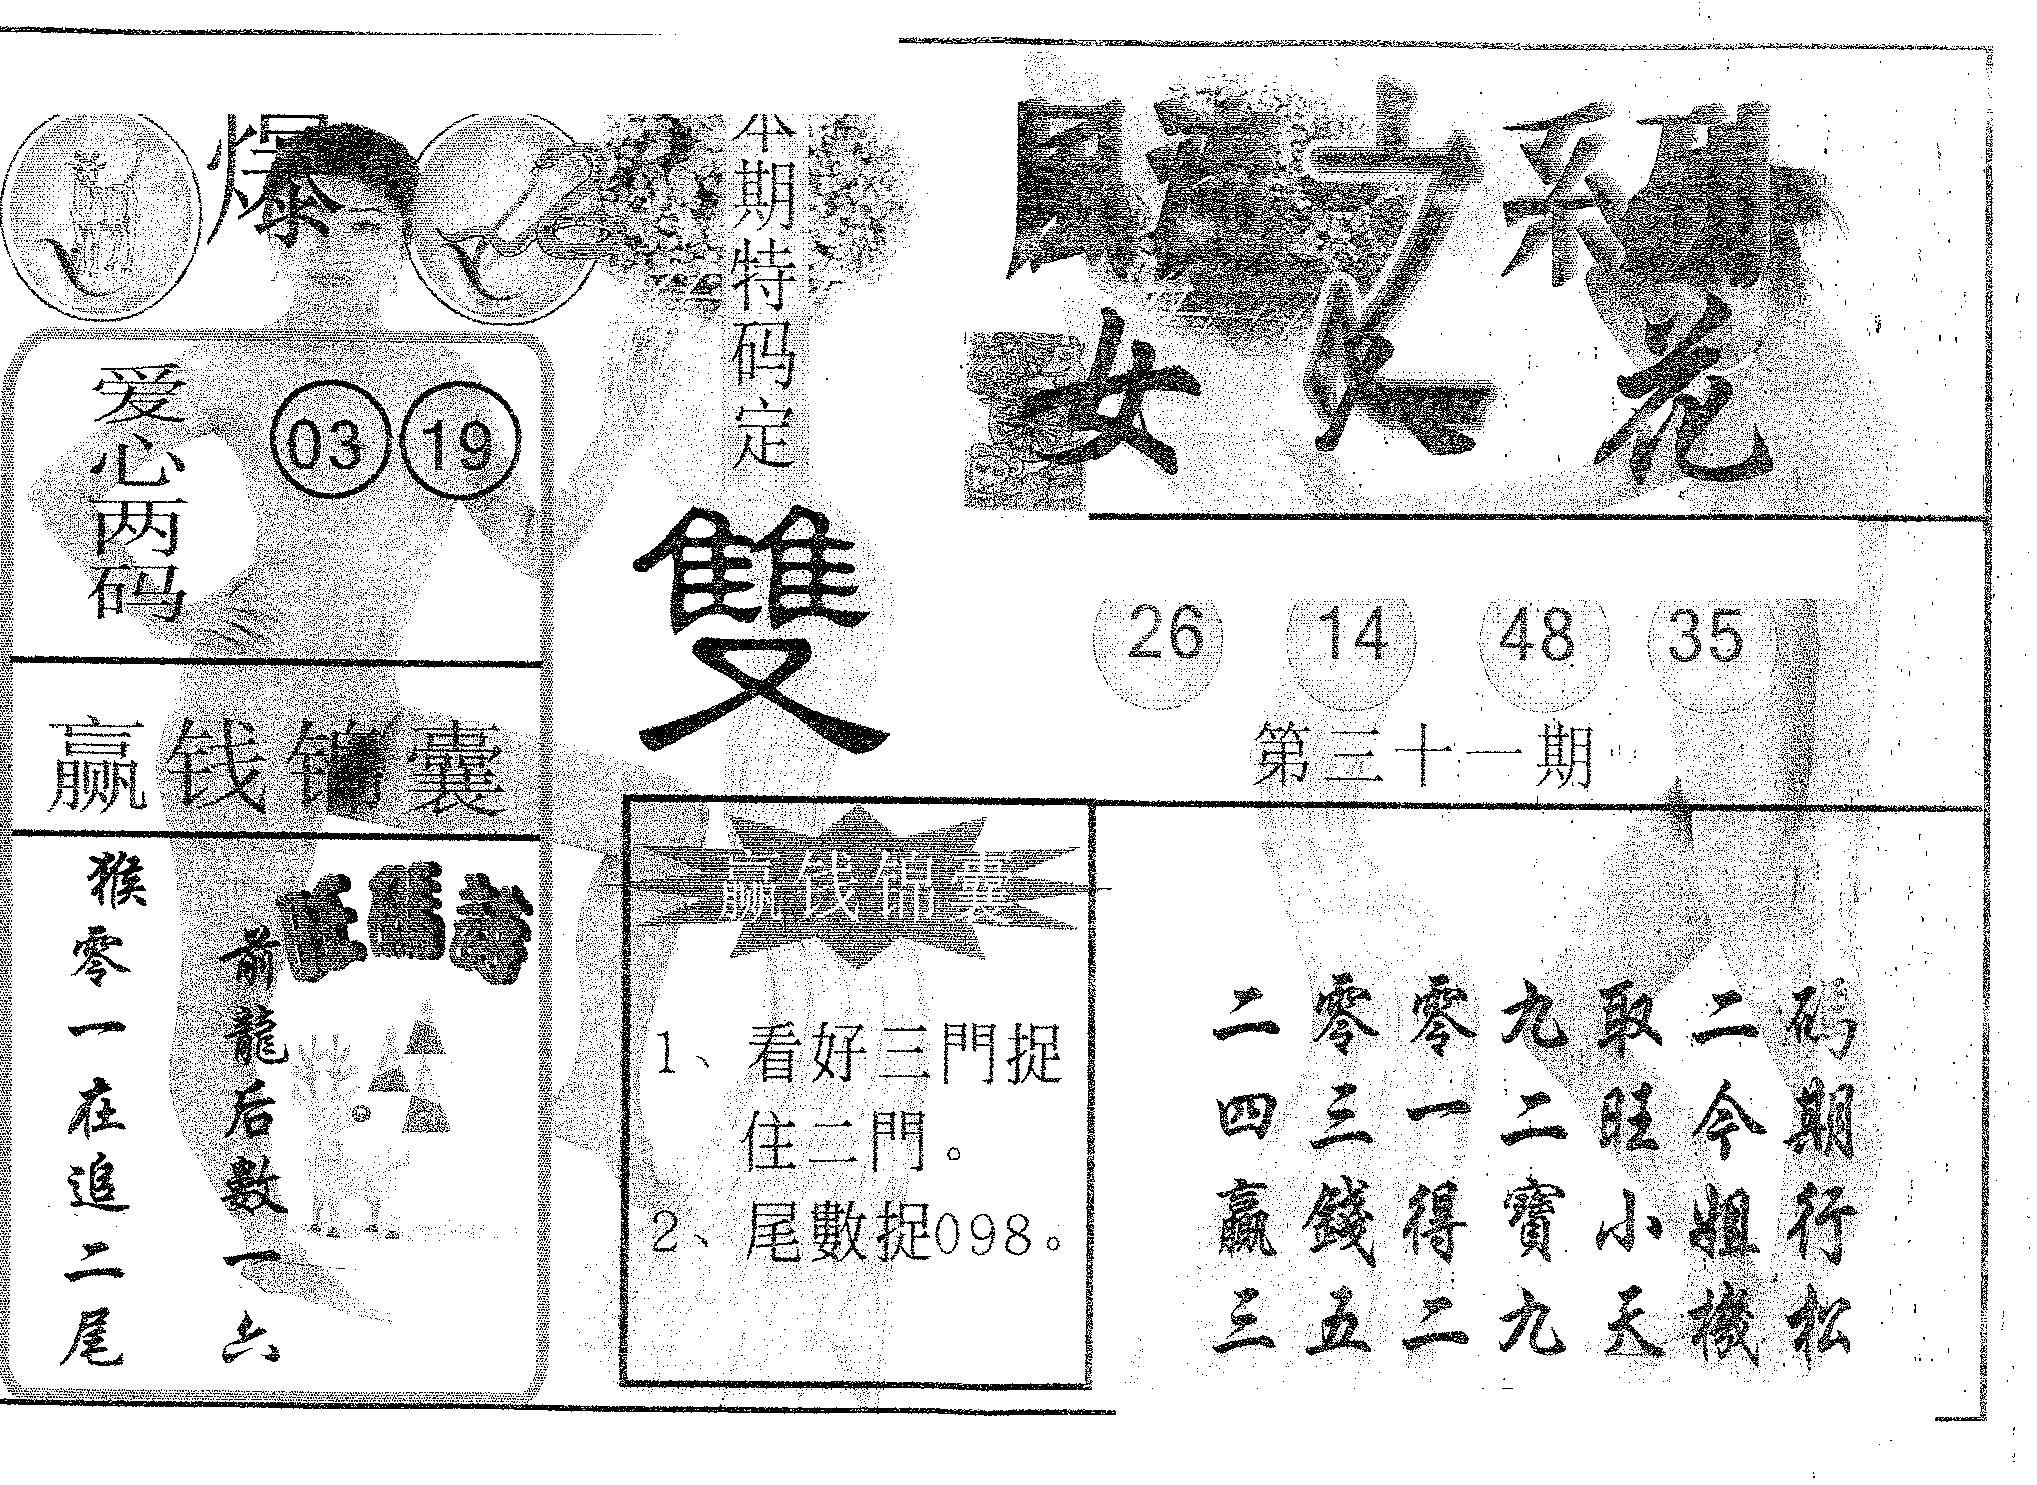 爆
本期特码定
雙
爱心两码
03 19
赢钱锦囊
猴零一在追二尾
前龍后數一六
女 人 花
26 14 48 35
第三十一期
赢钱锦囊
1、看好三門捉
住二門。
2、尾數捉098。
二零零九取二码
四三一二旺今期
贏錢得寶小姐行
三五二九天機松